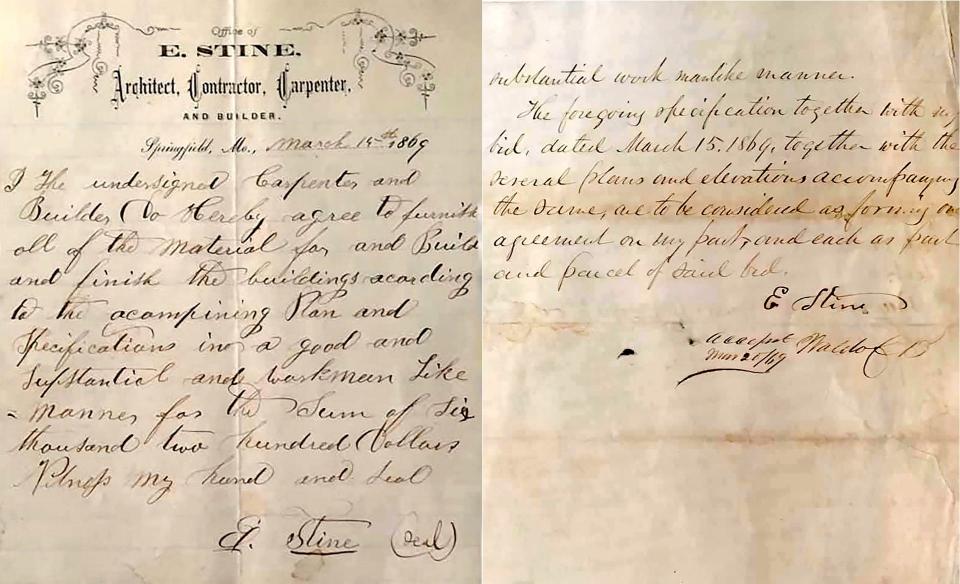 Office of
E. STINE.
Architect, Contractor, Carpenter,
AND BUILDER.
Springfield, Mo., March 15th 1869
I The undersigned Carpenter and
Builder Do Hereby agree to furnish
all of the Material for and Build
and finish the buildings acording
to the acompining Plan and
Specifications in a good and
Substantial and workman Like
manner for the Sum of Six
thousand two hundred Dollars
Witness my hand and seal
E. Stine (Seal)
substantial work manlike manner.
The foregoing specification together with my
bid, dated March 15. 1869, together with the
several plans and elevations accompanying
the same, are to be considered as forming
agreement on my part, and each as part
and parcel of said bid.
E Stine
accept
Mar 20/69